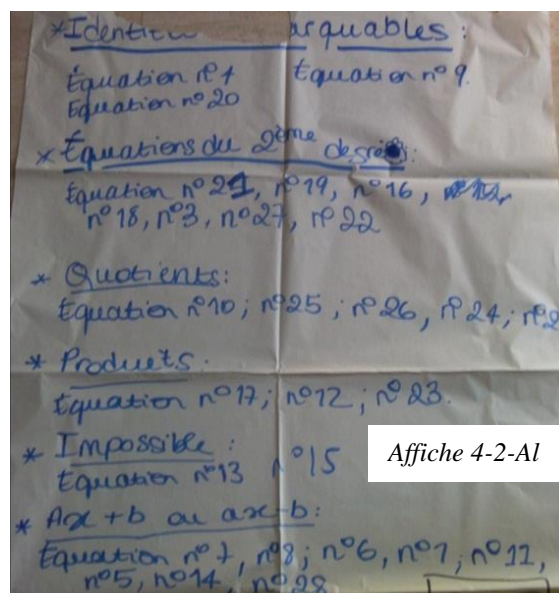 * arquables :
Équation n° Équation n° 9.
Équation n° 20
* Équations du 2ème degré :
Équation n° 21, n° 19, n° 16,
n° 18, n° 3, n° 27, n° 22
* Quotients :
Équation n° 10 ; n° 25 ; n° 26, n° 24 ; n° 2
* Produits :
Équation n° 17 ; n° 12 ; n° 23.
* Impossible :
Équation n° 13 n° 15
Affiche 4-2-Al
* Ax + b ou ax-b :
Équation n° 7, n° 8 ; n° 6, n° 1, n° 11,
n° 5, n° 14, n° 28